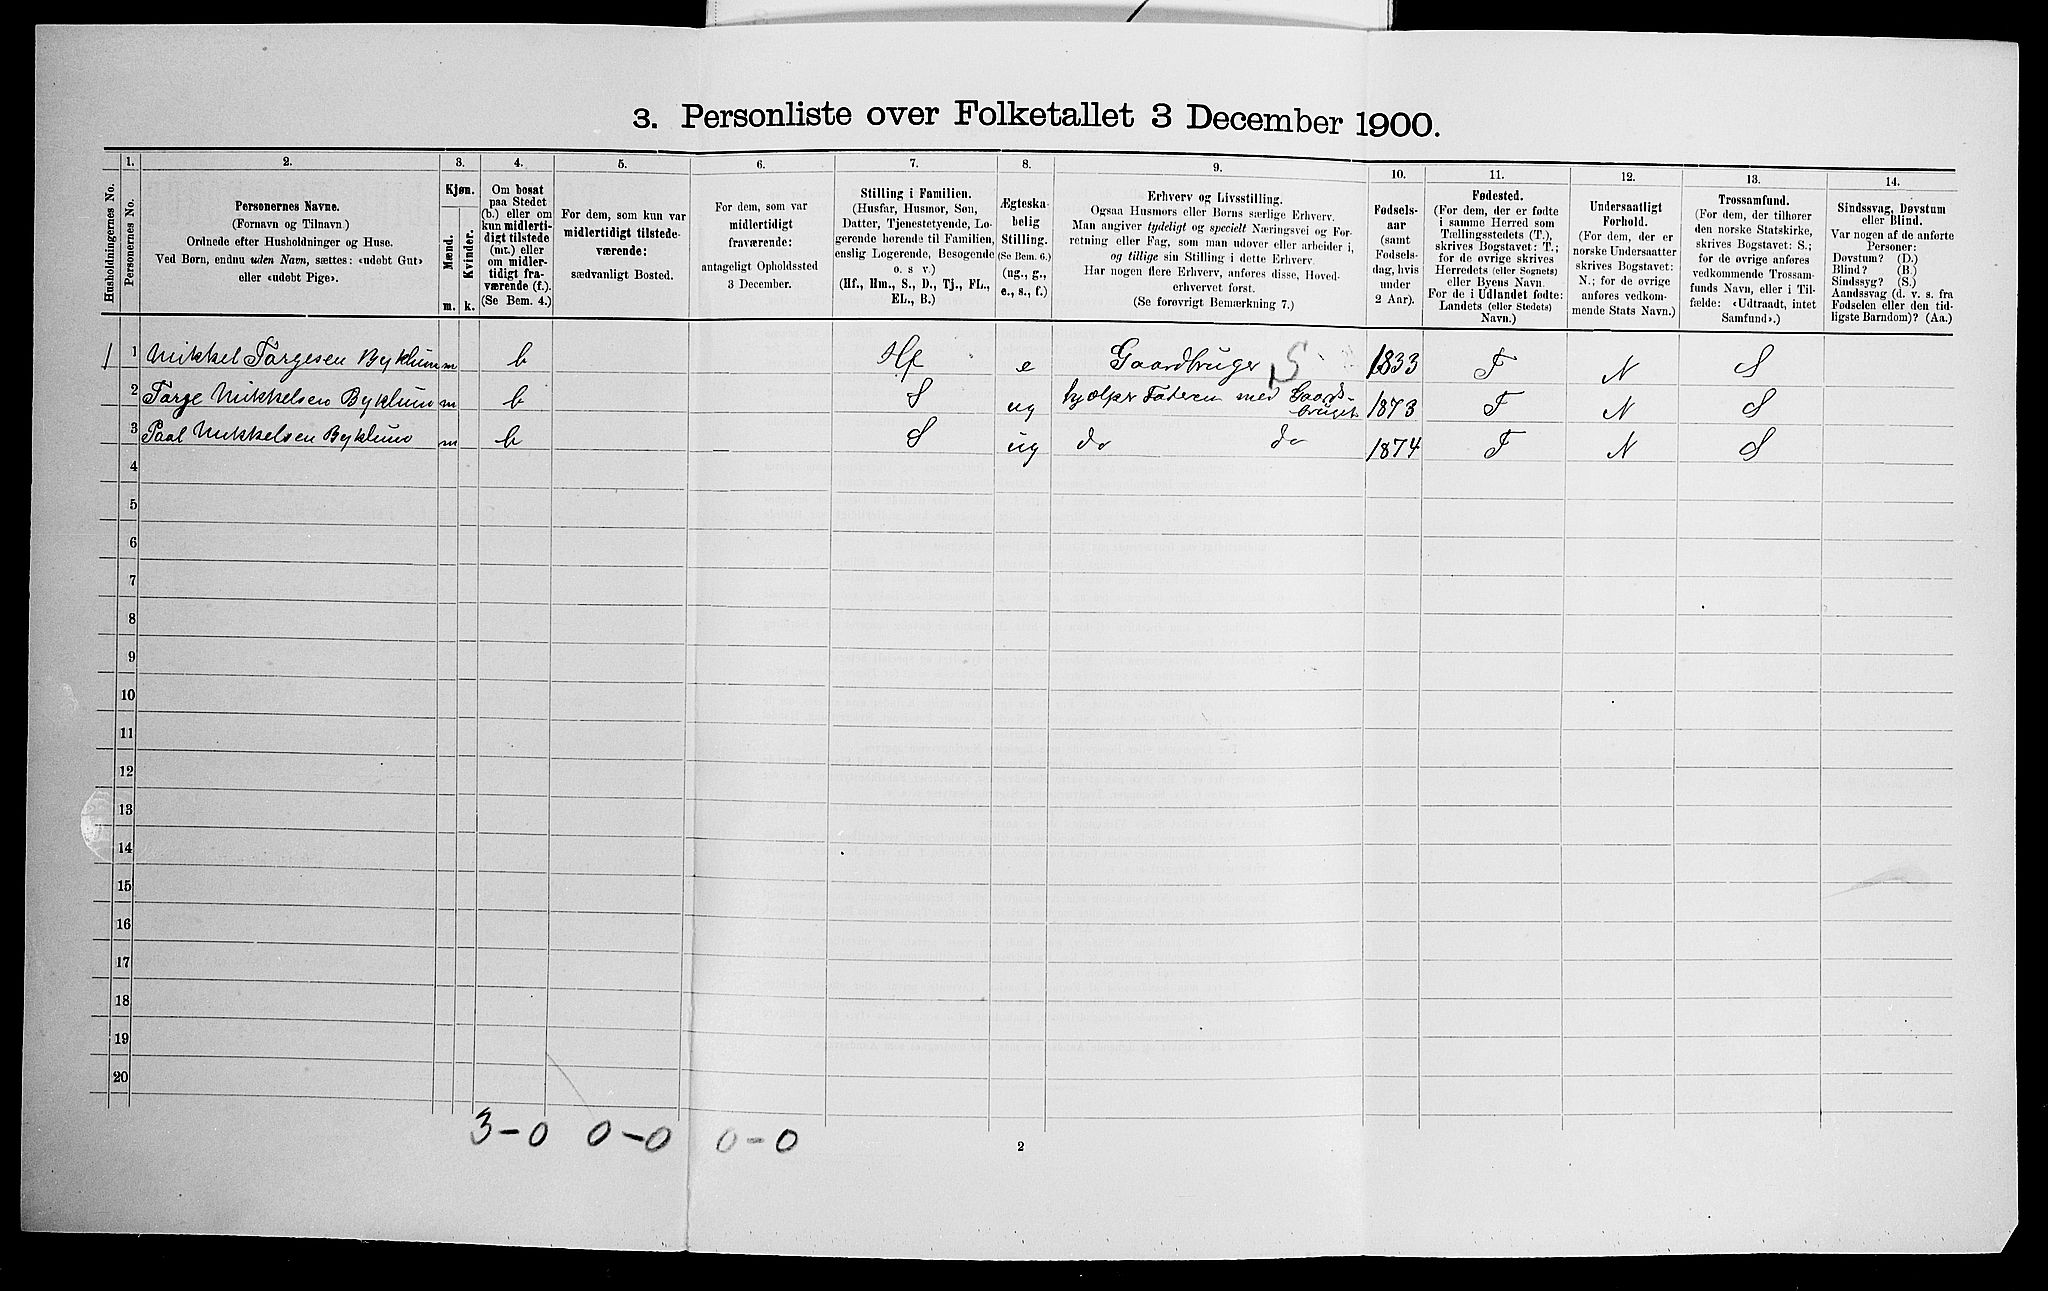 3. Personliste over Folketallet 3 December 1900.
1. 2. 3. 4. 5. 6. 7. 8. 9. 10. 11. 12. 13. 14.
Husholdningernes No.
Personernes No.
Personernes Navne.
(Fornavn og Tilnavn)
Ordnede efter Husholdninger og Huse.
Ved Børn, endnu uden Navn, sættes: «udøbt Gut»
eller «udøbt Pige».
Kjøn.
Mænd.
Kvinder.
m. k.
Om bosat
paa Stedet
(b.) eller om
kun midlerti-
digt tilstede
(mt.) eller
om midler-
tidigt fra-
værende (f.).
(Se Bem. 4.)
For dem, som kun var
midlertidigt tilstede-
værende:
sædvanligt Bosted.
For dem, som var
midlertidigt
fraværende:
antageligt Opholdssted
3 December.
Stilling i Familien.
(Husfar, Husmor, Søn,
Datter, Tjenestetyende, Lo-
gerende hørende til Familien,
enslig Logerende, Besøgende
o. s v.)
(Hf., Hm., S., D., Tj., FL.,
EL., B.)
Ægteska-
belig
Stilling.
(Se Bem. 6.)
(ug., g.,
e., s., f.)
Erhverv og Livsstilling.
Ogsaa Husmors eller Børns særlige Erhverv.
Man angiver tydeligt og specielt Næringsvei og For-
retning eller Fag, som man udover eller arbeider i,
og tillige sin Stilling i dette Erhverv.
Har nogen flere Erhverv, anføres disse, Hoved-
erhvervet først.
(Se forøvrigt Bemærkning 7.)
Fødsels-
aar
(samt
Fødsels-
dag, hvis
under
2 Aar).
Fødested.
(For dem, der er fødte
i samme Herred som
Tællingsstedets (T.),
skrives Bogstavet: T.;
for de øvrige skrives
Herredets (eller Sognets)
eller Byens Navn.
For de i Udlandet fødte:
Landets (eller Stedets)
Navn.)
Undersaatligt
Forhold.
(For dem, der er
norske Undersaatter
skrives Bogstavet:
N.; for de øvrige
anføres vedkom-
mende Stats Navn.)
Trossamfund.
(For dem, der tilhører
den norske Statskirke,
skrives Bogstavet: S.;
for de øvrige anføres
vedkommende Trossam-
funds Navn, eller i Til-
fælde: «Udtraadt, intet
Samfund».)
Sindssvag, Døvstum
eller Blind.
Var nogen af de anførte
Personer:
Døvstum? (D.)
Blind? (B.)
Sindssyg? (S.)
Aandssvag (d. v. s. fra
Fødselen eller den tid-
ligste Barndom)? (Aa.)
1 1 Mikkel Targesen Byklum m b Hf e Gaardbruger S 1833 T N S
2 Targe Mikkelsen Byklum m b S ug hjælper Faderen med Gaards-
bruget 1873 T N S
3 Paal Mikkelsen Byklum m b S ug do do 1874 T N S
4
5
6
7
8
9
10
11
12
13
14
15
16
17
18
19
20
3-0 0-0 0-0
2